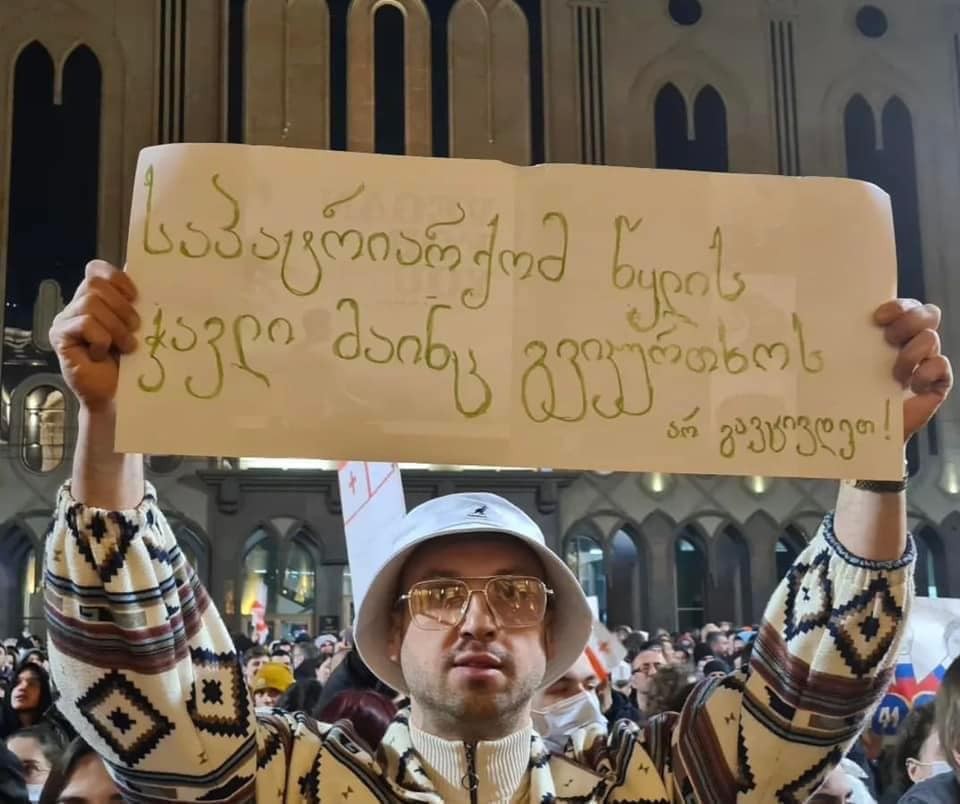 საპატრიარქომ წყლის
ჭავლი მაინც გვიკურთხოს
არ გავცივდეთ!